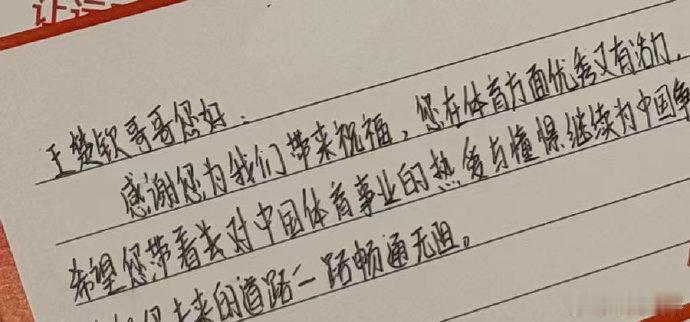 让运
王楚钦哥哥您好:
感谢您为我们带来祝福,您在体育方面优秀又有活力,
希望您带着去对中国体育事业的热爱与憧憬继续为中国争
未来的道路一路畅通无阻。